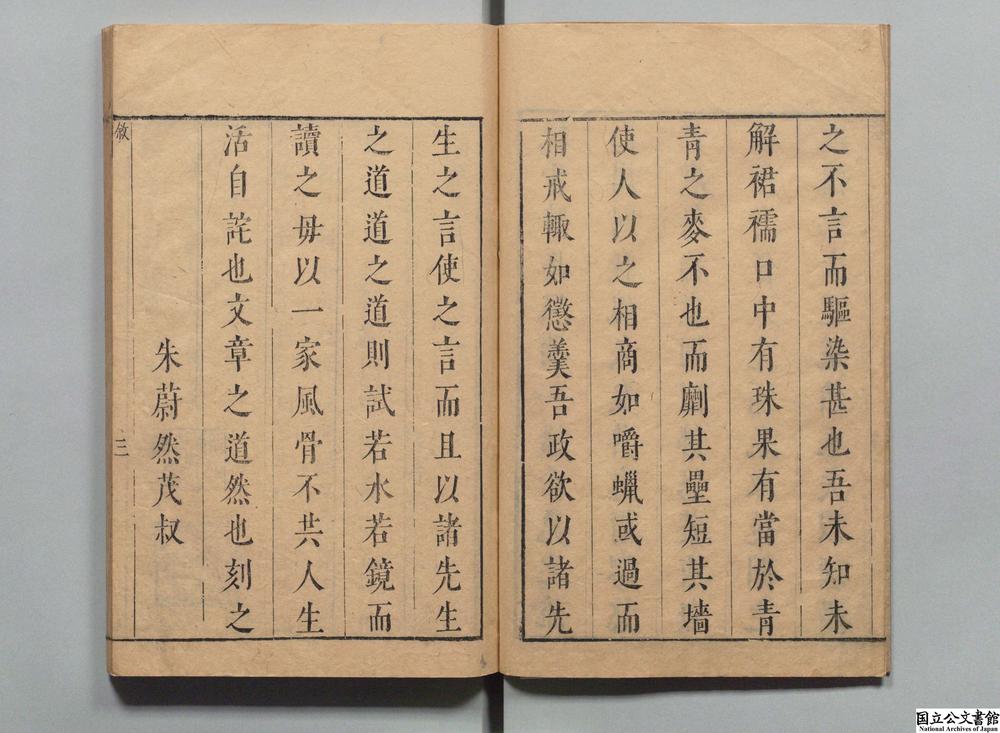 之不言而驅染甚也吾未知未
解裙襦口中有珠果有當於青
青之麥不也而劘其壘短其墻
使人以之相商如嚼蠟或過而
相戒輙如懲羹吾政欲以諸先
生之言使之言而且以諸先生
之道道之道則試若水若鏡而
讀之毋以一家風骨不共人生
活自詫也文章之道然也刻之
朱蔚然茂叔
敘
三
国立公文書館
National Archives of Japan